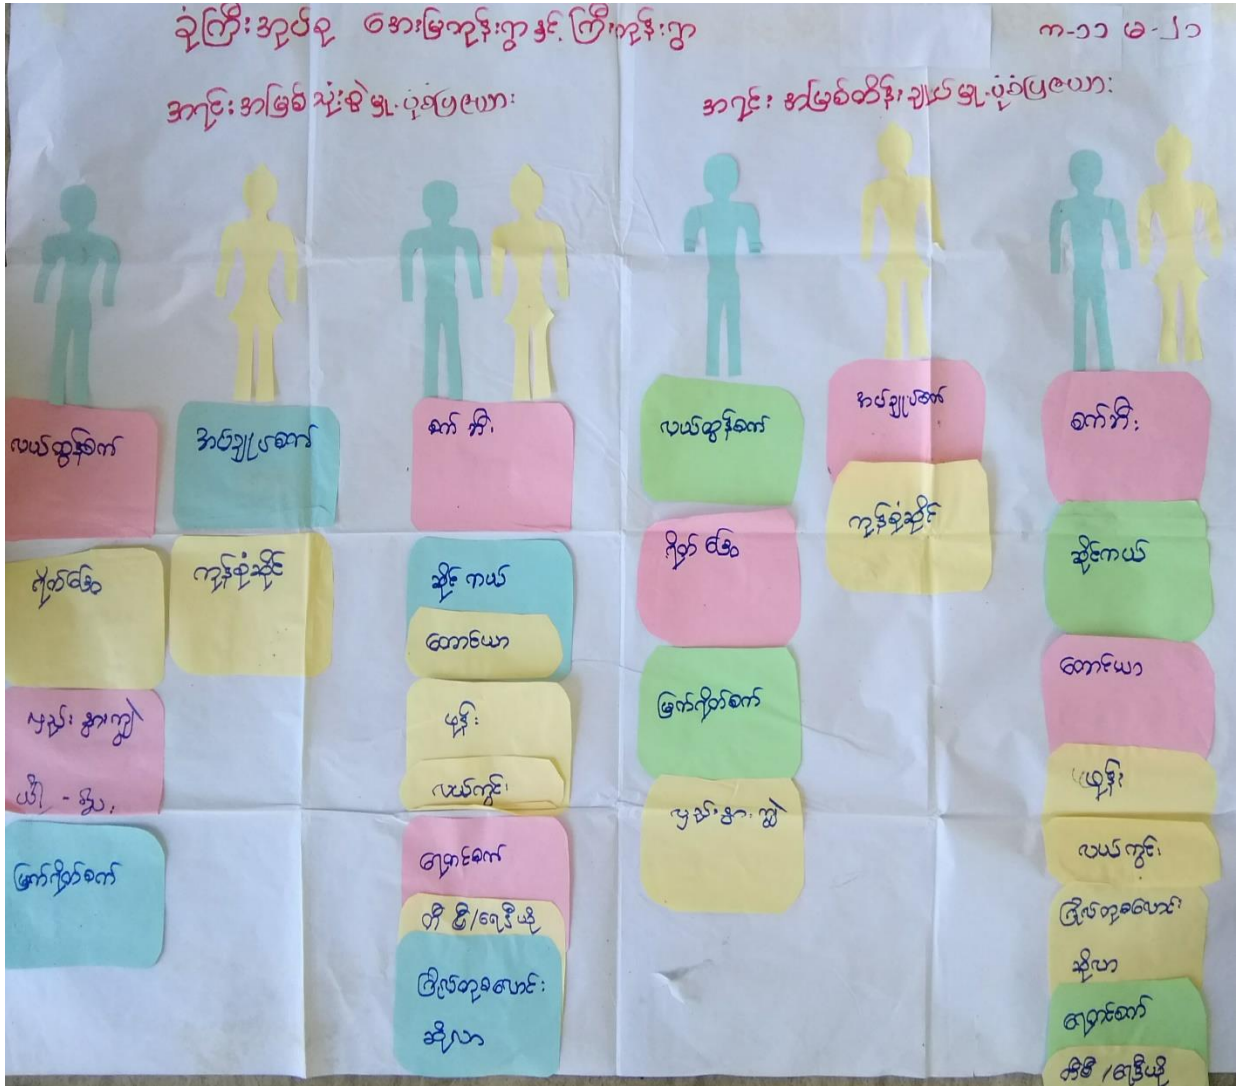 ခုံကြီးအုပ်စု အေးမြကုန်းရွာနှင့် ကြီးကုန်းရွာ
က-၁၁ မ-၂၁
အရင်းအမြစ်သုံးစွဲမှု ပုံစံပြဇယား
အရင်းအမြစ်ထိန်းချုပ်မှု ပုံစံပြဇယား
လယ်ထွန်စက်
ရိတ်ခြွေ
လှည်းနွားကျွဲ
မြက်ရိတ်စက်
အပ်ချုပ်စက်
ကုန်စုံဆိုင်
စက်ဘီး
ဆိုင်ကယ်
တောင်ယာ
ဖုန်း
လယ်ကွင်း
ရေတင်စက်
တီဗီ/ရေဒီယို
ဂြိုလ်တုစလောင်း
ဆိုလာ
လယ်ထွန်စက်
ရိတ်ခြွေ
မြက်ရိတ်စက်
လှည်းနွားကျွဲ
အပ်ချုပ်စက်
ကုန်စုံဆိုင်
စက်ဘီး
ဆိုင်ကယ်
တောင်ယာ
ဖုန်း
လယ်ကွင်း
ဂြိုလ်တုစလောင်း
ဆိုလာ
ရေတင်စက်
တီဗီ/ရေဒီယို